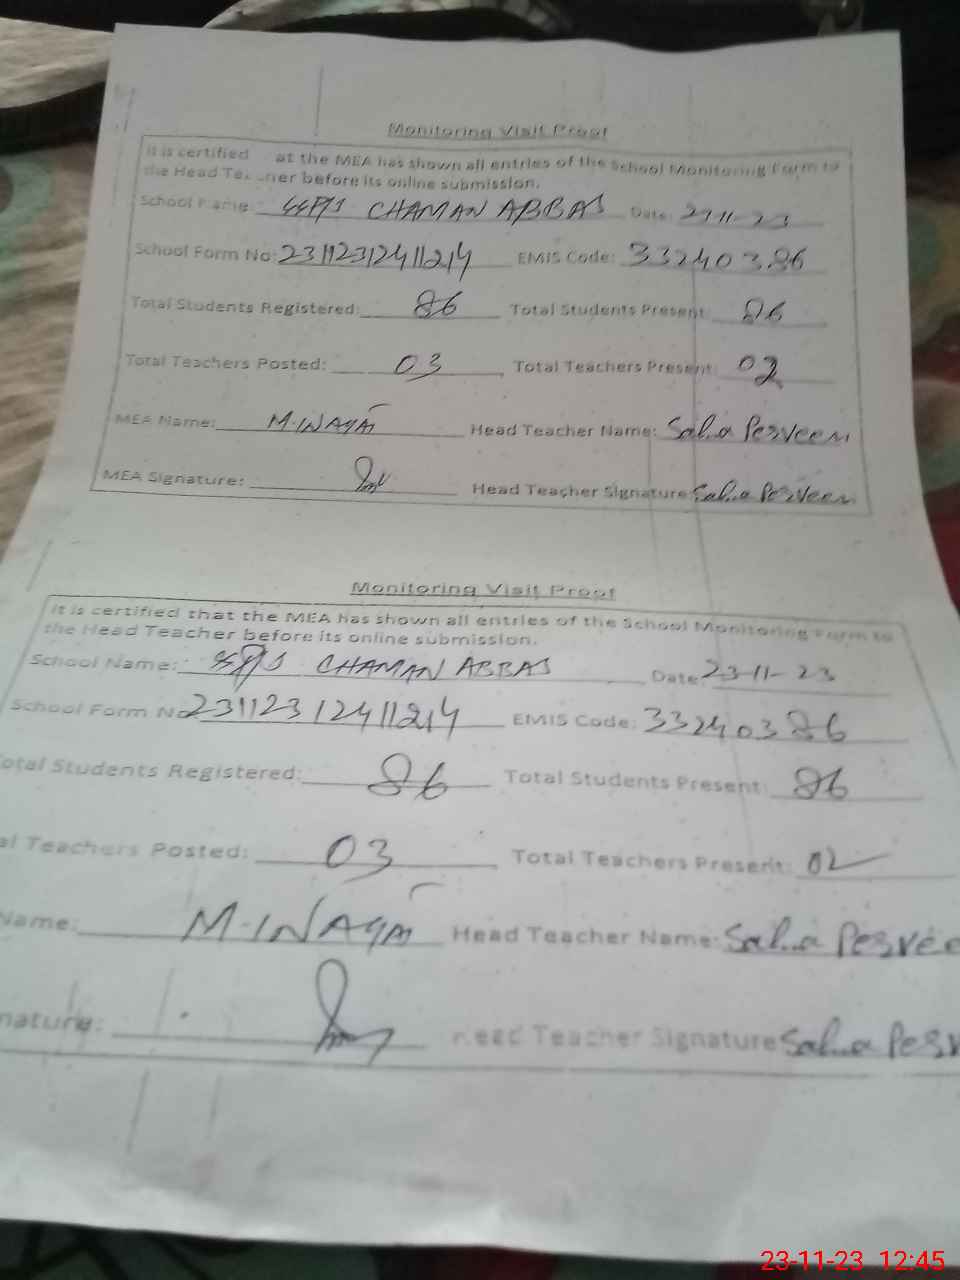 Monitoring Visit Proof
It is certified at the MEA has shown all entries of the School Monitoring Form to
the Head Teacher before its online submission.
School Name: CHAMAN ABBAS Date: 2711-23
School Form No: 23112312411214 EMIS Code: 33240386
Total Students Registered: 86 Total Students Present: 86
Total Teachers Posted: 03 Total Teachers Present: 02
MEA Name: M.INAYAT Head Teacher Name: Perveen
MEA Signature: Head Teacher Signature: Perveen
Monitoring Visit Proof
It is certified that the MEA has shown all entries of the School Monitoring Form to
the Head Teacher before its online submission.
School Name: CHAMAN ABBAS Date: 23-11-23
School Form No: 23112312411214 EMIS Code: 33240386
otal Students Registered: 86 Total Students Present: 86
al Teachers Posted: 03 Total Teachers Present: 02
Name: M.INAYAT Head Teacher Name: Pervee
nature: Head Teacher Signature Perv
23-11-23 12:45